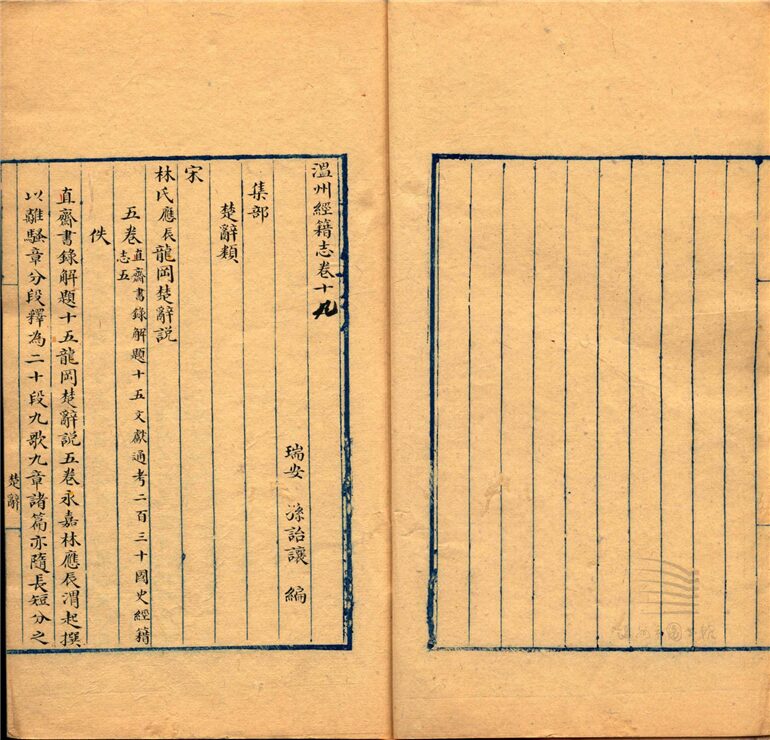 溫州經籍志卷十九
瑞安 孫詒讓 編
集部
楚辭類
宋
林氏應辰龍岡楚辭說
五卷直齋書錄解題十五文獻通考二百三十國史經籍
志五
佚
直齋書錄解題十五龍岡楚辭說五卷永嘉林應辰渭起撰
以離騷章分段釋為二十段九歌九章諸篇亦隨長短分之
楚辭